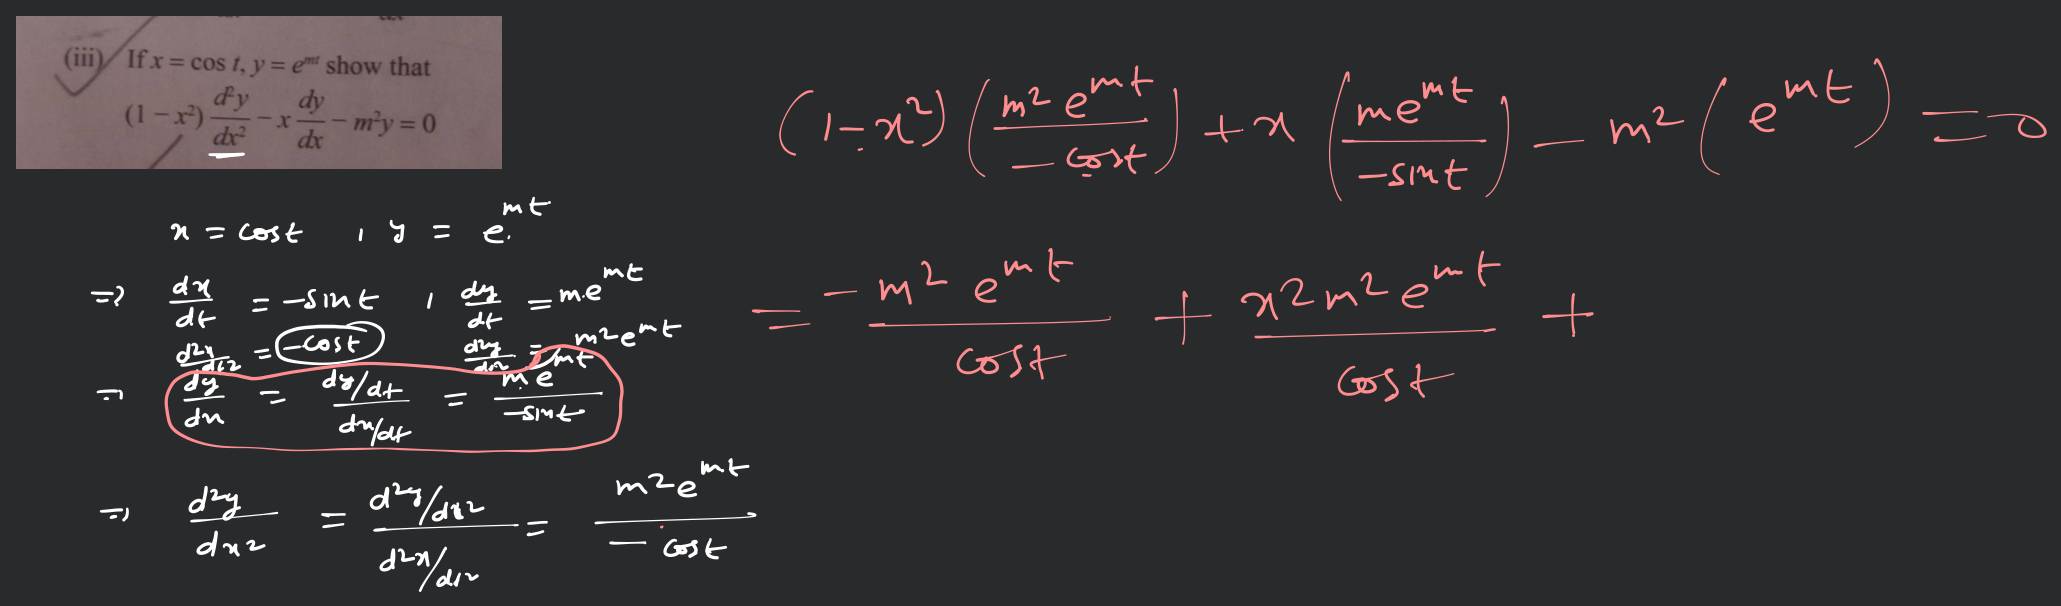 (iii) If x = cos t, y = e^{mt} show that
(1 − x²) d²y/dx² − x dy/dx − m²y = 0
x = cost , y = e^{mt}
=> dx/dt = -sint , dy/dt = m.e^{mt}
d²x/dt² = -cost d²y/dt² = m²e^{mt}
=> dy/dx = (dy/dt)/(dx/dt) = me^{mt}/-sint
=> d²y/dx² = (d²y/dx²)/(d²x/dt²) = m²e^{mt}/-cost
(1-x²) (m²e^{mt}/-cost) + x (me^{mt}/-sint) - m² (e^{mt}) = 0
= -m²e^{mt}/cost + x²m²e^{mt}/cost +